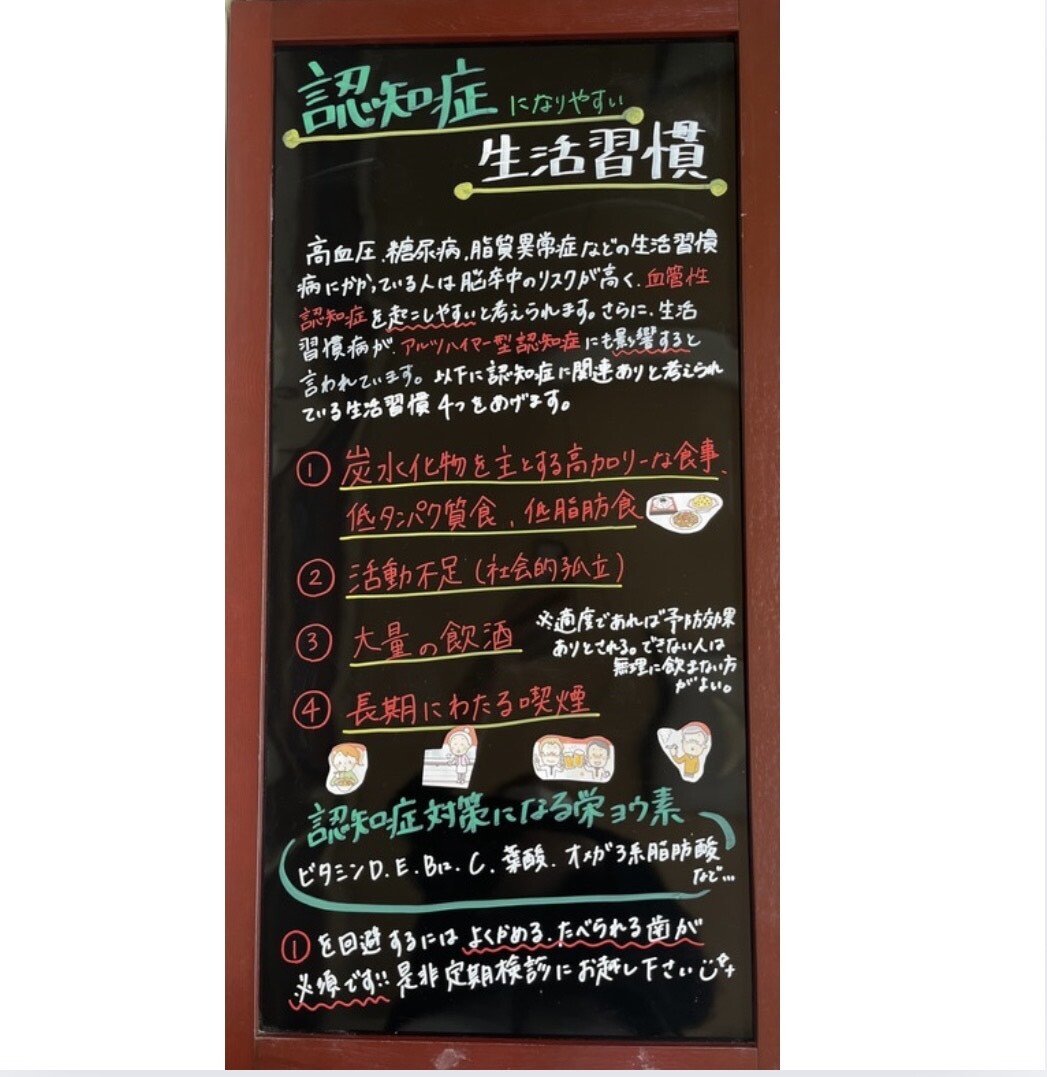 認知症になりやすい
生活習慣
高血圧、糖尿病、脂質異常症などの生活習慣
病にかかっている人は脳卒中のリスクが高く、血管性
認知症を起こしやすいと考えられます。さらに、生活
習慣病が、アルツハイマー型認知症にも影響すると
言われています。以下に認知症に関連ありと考えられ
ている生活習慣4つをあげます。
① 炭水化物を主とする高カロリーな食事、
低タンパク質食、低脂肪食
② 活動不足(社会的孤立)
③ 大量の飲酒
※適度であれば予防効果
ありとされる。できない人は
無理に飲まない方
がよい。
④ 長期にわたる喫煙
認知症対策になる栄ヨウ素
ビタミンD、E、B12、C、葉酸、オメガ3系脂肪酸
など…
①を回避するには よくかめる、たべられる歯が
必須です!!是非定期検診にお越し下さい